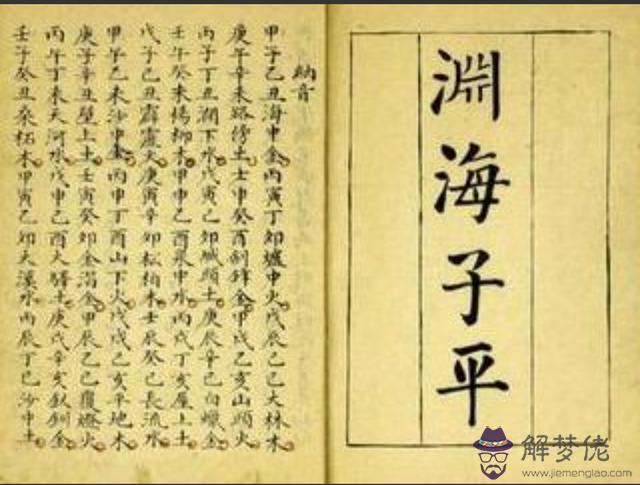 淵海子平
納音
甲子乙丑海中金丙寅丁卯爐中火戊辰己巳大林木
庚午辛未路傍土壬申癸酉劍鋒金甲戌乙亥山頭火
丙子丁丑澗下水戊寅己卯城頭土庚辰辛巳白蠟金
壬午癸未楊柳木甲申乙酉泉中水丙戌丁亥屋上土
戊子己丑霹靂火庚寅辛卯松柏木壬辰癸巳長流水
甲午乙未沙中金丙申丁酉山下火戊戌己亥平地木
庚子辛丑壁上土壬寅癸卯金箔金甲辰乙巳覆燈火
丙午丁未天河水戊申己酉大驛土庚戌辛亥釵釧金
壬子癸丑桑柘木甲寅乙卯天溪水丙辰丁巳沙中土
解梦佬
www.jiemenglao.com